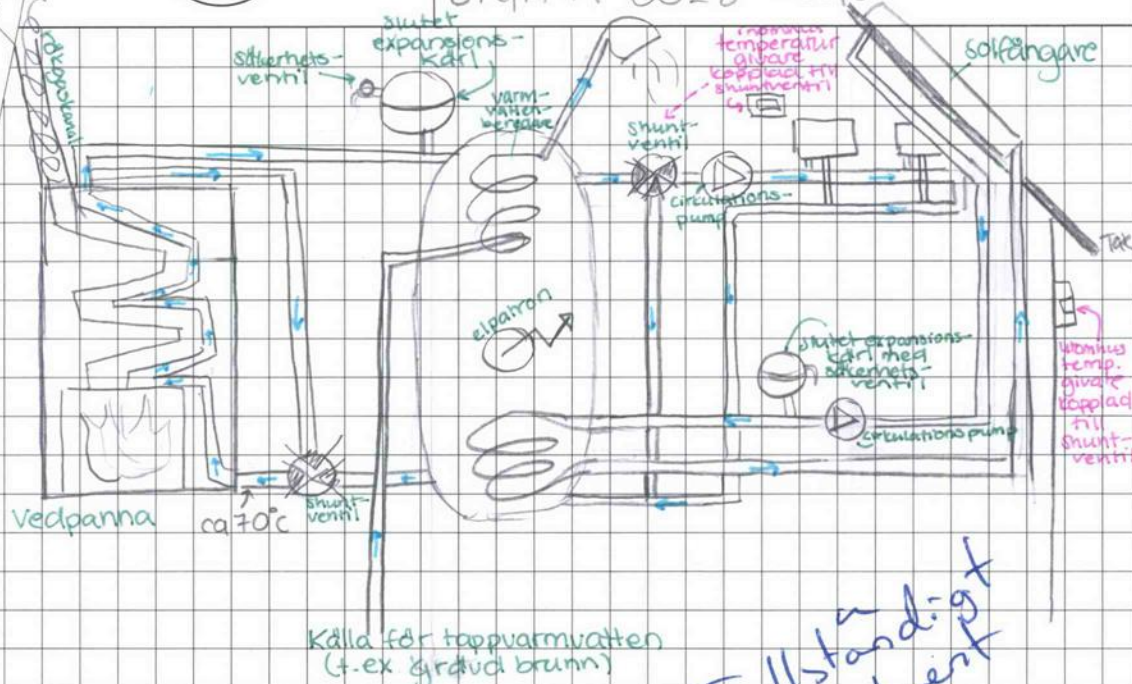 rökgaskanal
säkerhets-
ventil
slutet
expansions-
kärl
varm-
vatten-
beredare
inomhus
temperatur
givare
kopplad till
shuntventil
solfångare
shunt-
ventil
cirkulations-
pump
Tak
elpatron
slutet expansions-
kärl med
säkerhets-
ventil
cirkulationspump
utomhus
temp.
givare
kopplad
till
shunt-
ventil
Vedpanna
ca 70°C
shunt-
ventil
Källa för tappvarmvatten
(t.ex grävd brunn)